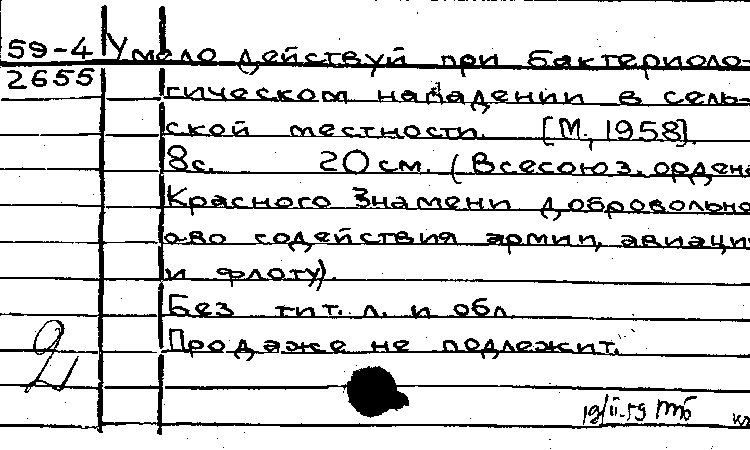 59-4 Умело действуй при бактериоло-
2655 гическом нападении в сель-
ской местности. [М., 1958].
8с. 20 см. (Всесоюз. ордена
Красного Знамени добровольно
о-во содействия армии, авиаци
и флоту).
Без тит. л. и обл.
Продаже не подлежит.
19/II-59